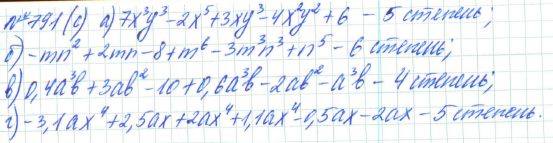 № 791 (с) а) 7x³y³ - 2x⁵ + 3xy³ - 4x²y² + 6 - 5 степень;
б) - mn² + 2mn - 8 + m⁶ - 3m³n³ + n⁵ - 6 степень;
в) 0,4a³b + 3ab² - 10 + 0,6a³b - 2ab² - a³b - 4 степень;
г) - 3,1ax⁴ + 2,5ax + 2ax⁴ + 1,1ax⁴ - 0,5ax - 2ax - 5 степень.